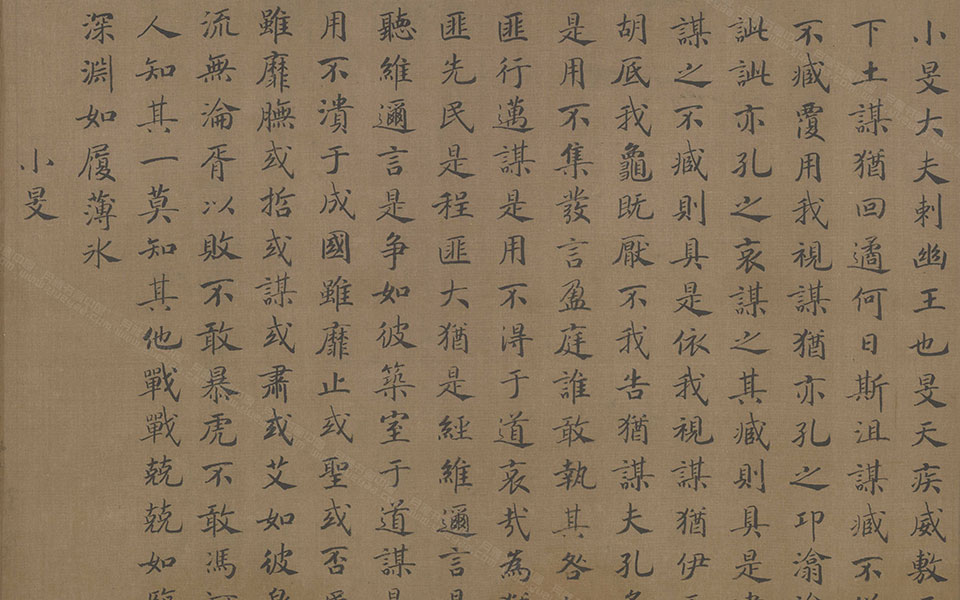 小旻大夫刺幽王也旻天疾威敷
下土謀猶回遹何日斯沮謀臧不
不臧覆用我視謀猶亦孔之卭潝
訿訿亦孔之哀謀之其臧則具是
謀之不臧則具是依我視謀猶伊
胡厎我龜既厭不我告猶謀夫孔
是用不集發言盈庭誰敢執其咎
匪行邁謀是用不得于道哀哉為
匪先民是程匪大猶是經維邇言
聽維邇言是争如彼築室于道謀
用不潰于成國雖靡止或聖或否
雖靡膴或哲或謀或肅或艾如彼
流無淪胥以敗不敢暴虎不敢馮
人知其一莫知其他戰戰兢兢如臨
深淵如履薄氷
小旻